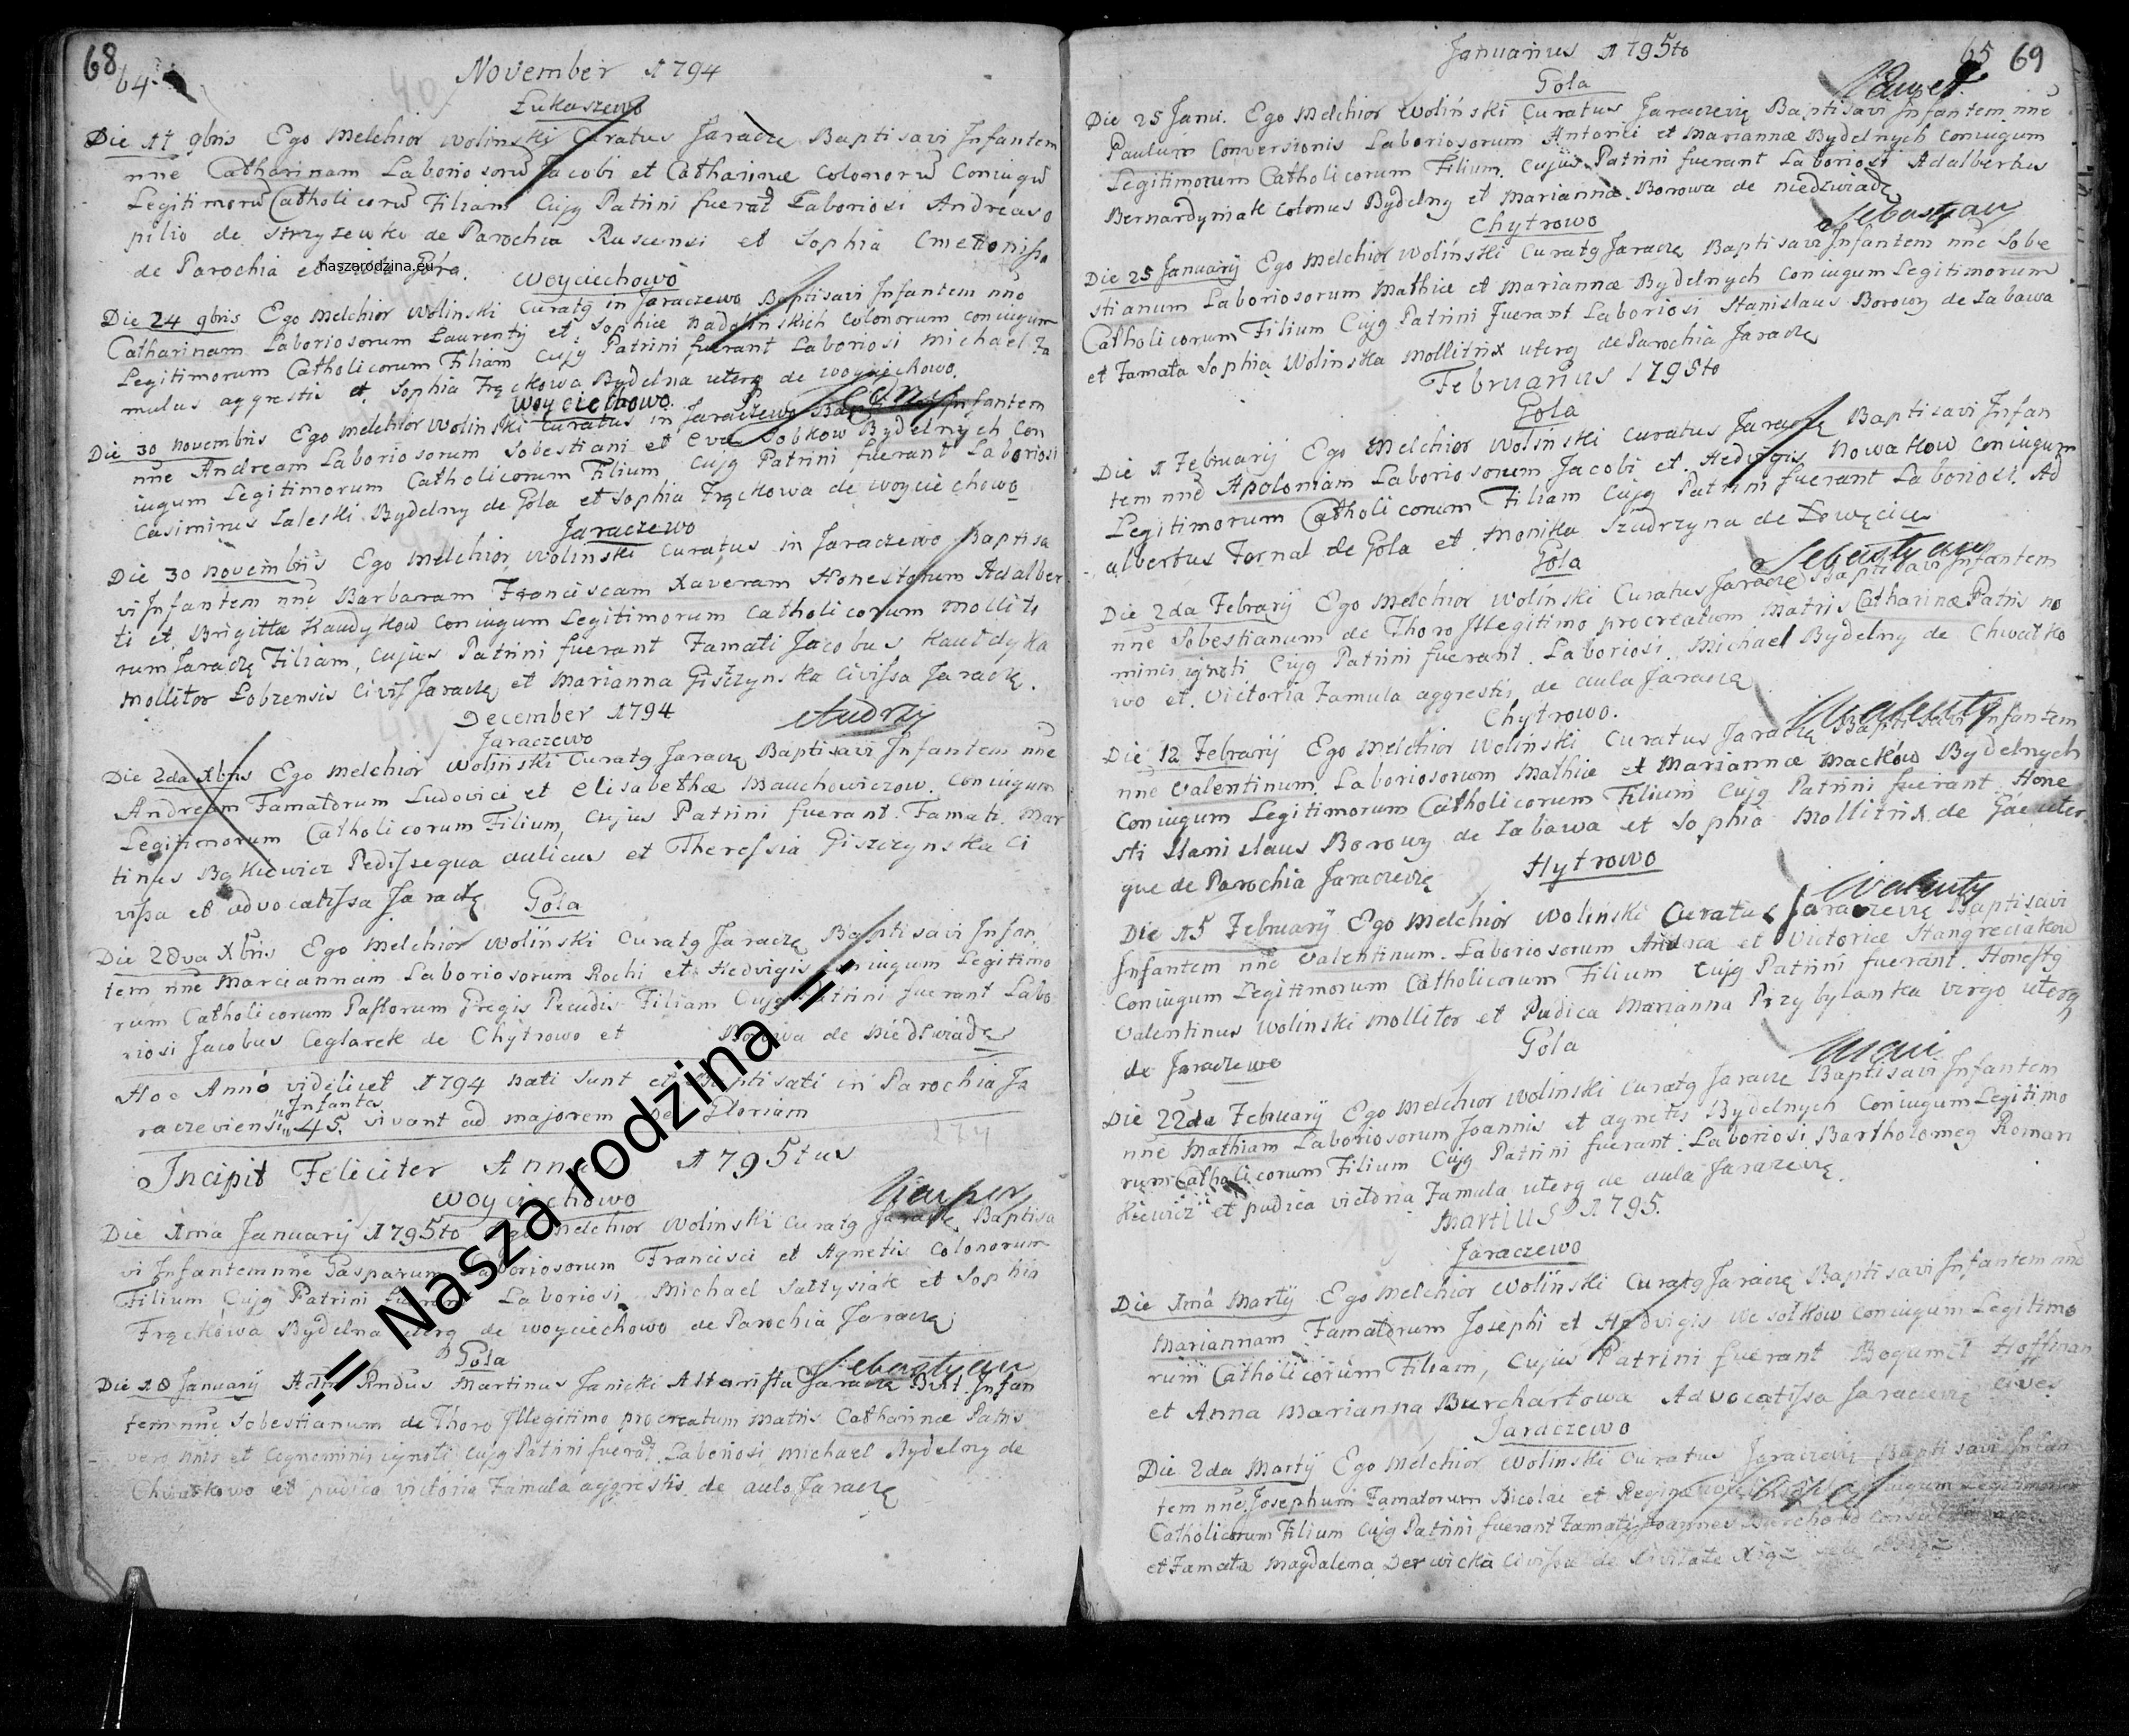 68
64
November 1794
Łukaszewo
Die 17 9bris Ego Melchior Wolinski Curatus Jaracze Baptisavi Infantem
nne Catharinam Laboriosorū Jacobi et Catharinæ Colonorū Coniugū
Legitimorū Catholicorū Filiam Cujg Patrini fuerat Laboriosi Andreas o
pilio de Strzyzewko de Parochia Rusensi et Sophia
de Parochia et Góra.
naszarodzina.eu
Woyciechowo
Die 24 9bris Ego Melchior Wolinski Curatg in Jaraczewo Baptisavi Infantem nne
Catharinam Laboriosorum Laurentij et Sophiæ Nadolinskich Colonorum coniugum
Legitimorum Catholicorum Filiam Cujg Patrini fuerant Laboriosi Michael Fa
mulus aggrestis et Sophia Frąckowa Bydelna uterq de Woyciechowo.
Woyciechowo
Die 30 Novembris Ego Melchior Wolinski Curatus in Jaraczewo Infantem
nne Andream Laboriosorum Sobestiani et Eva Sobkow Bydelnych Con
iugum Legitimorum Catholicorum Filium Cujg Patrini fuerant Laboriosi
Casimirus Zaleski Bydelny de Gola et Sophia Frąckowa de Woyciechowo
Jaraczewo
Die 30 Novembris Ego Melchior Wolinski Curatus in Jaraczewo Baptisa
vi Infantem nne Barbaram Franciscam Xaveram Honestorum Adalber
ti et Brigittæ Kaudykow Coniugum Legitimorum Catholicorum Mollito
rum Jaraczę Filiam, Cujus Patrini fuerant Famati Jacobus Kautdyka
Mollitor Lobzensis Civis Jaraczę et Marianna Giszzynska Civissa Jaraczę.
December 1794
Andrzy
Jaraczewo
Die 2da Xbris Ego Melchior Woliński Curatg Jaraczę Baptisavi Infantem nne
Andream Famatorum Ludovici et Elisabethæ Mauchowiczow. Coniugum
Legitimorum Catholicorum Filium, Cujus Patrini fuerant Famati Mar
tinus Bąkiewicz Pedissequa aulicus et Theressia Giszczynska Ci
vissa et advocatissa Jaraczę
Gola
Die 2dva Xbris Ego Melchior Woliński Curatg Jaraczę Baptisavi Infan
tem nne Marciannam Laboriosorum Rochi et Hedvigis Coniugum Legitimo
rum Catholicorum Pastorum Gregis Pecudis Filiam Cujg Patrini fuerant Labo
riosi Jacobus Ceglarek de Chytrowo et Borowa de Niedzwiadę
Hoc Anno videlicet 1794 nati sunt et Baptisati in Parochia Ja
Infantes
racreviensi 45. vivant ad majorem Dei Gloriam
274
Incipit Feliciter Annus 1795tus
Woyciechowo
Kasper
Die 1ma Januarij 1795to Ego Melchior Wolinski Curatg Jaraczę Baptisa
vi Infantem nne Gasparum Laboriosorum Francisci et Agnetis Colonorum
Filium Cujg Patrini fuerant Laboriosi Michael Sałtysiak et Sophia
Frąckowa Bydelna uterq de Woyciechowo de Parochia Jaraczę
Gola
Sebastyan
Die 18 Januarij Adm Rndus Martinus Janicki Altarista Jaracz Bapt. Infan
tem nne Sobestianum de Thoro Illegitimo procreatum Matris Catharinæ Patris
vero nnis et Cognominis ignoti Cujg Patrini fuerat Laboriosi Michael Bydelny de
Chwatkowo et pudica Victoria Famula aggrestis de aula Jaraczę
-= Nasza rodzina =-
Januarius 1795to
65 69
Gola
Paweł
Die 25 Janu. Ego Melchior Woliński Curatus Jaraczevię Baptisavi Infantem nne
Paulum Conversionis Laboriosorum Antonii et Mariannæ Bydelnych Coniugum
Legitimorum Catholicorum Filium. Cujus Patrini fuerant Laboriosi Adalbertus
Bernardyniak Colonus Bydelny et Marianna Borowa de Niedzwiadę
Chytrowo
Sebastyan
Die 25 Januarij Ego Melchior Woliński Curatg Jaraczę Baptisavi Infantem nne Sobe
stianum Laboriosorum Mathiæ et Mariannæ Bydelnych Coniugum Legitimorum
Catholicorum Filium Cujg Patrini fuerant Laboriosi Stanislaus Borowy de Zabawa
et Famata Sophia Wolinska Mollitrix uterq de Parochia Jaraczę
Februarius 1795to
Gola
Die 1 Februarij Ego Melchior Woliński Curatus Jaraczę Baptisavi Infan
tem nne Apoloniam Laboriosorum Jacobi et Hedvigis Nowakow Coniugum
Legitimorum Catholicorum Filiam Cujg Patrini fuerant Laboriosi Ad
albertus Fornal de Gola et Monika Szudrzyna de Łowęcice
Gola
Sebastyan
Die 2da Febrarij Ego Melchior Wolinski Curatus Jaraczę Baptisavi Infantem
nne Sobestianum de Thoro Illegitimo procreatum Matris Catharinæ Patris no
minis ignoti Cujg Patrini fuerant Laboriosi Michael Bydelny de Chwatko
wo et Victoria Famula aggrestis de aula Jaraczę
Chytrowo.
Walenty
Die 12 Febrarij Ego Melchior Wolinski Curatus Jaraczę Baptisavi Infantem
nne Valentinum Laboriosorum Mathiæ et Mariannæ Macków Bydelnych
Coniugum Legitimorum Catholicorum Filium Cujg Patrini fuerant Hone
sti Stanislaus Borowy de Zabawa et Sophia Mollitrix de Gæ uter
que de Parochia Jaraczevię
Hytrowo
Walenty
Die 15 Februarij Ego Melchior Woliński Curatus Jaraczevię Baptisavi
Infantem nne Valentinum Laboriosorum Andreæ et Victoriæ Stangreciakow
Coniugum Legitimorum Catholicorum Filium Cujg Patrini fuerant. Honestg
Valentinus Wolinski Mollitor et Pudica Marianna Przybylanka Virgo uterq
de Jaraczewo
Gola
Maci
Die 22da Februarij Ego Melchior Wolinski Curatg Jaraczę Baptisavi Infantem
nne Mathiam Laboriosorum Joannis et Agnetis Bydelnych Coniugum Legitimo
rum Catholicorum Filium Cujg Patrini fuerant Laboriosi Bartholomeg Roman
kiewicz et pudica Victoria Famula uterq de aula Jaraczevię.
Martius 1795.
Jaraczewo
Die 1ma Martij Ego Melchior Woliński Curatg Jaraczę Baptisavi Infantem nne
Mariannam Famatorum Josephi et Hedvigis Wesołkow Coniugum Legitimo
rum Catholicorum Filiam, Cujus Patrini fuerant Bogumił Hoffman
et Anna Marianna Burchartowa Advocatissa Jaraczevię Cives
Jaraczewo
Die 2da Martij Ego Melchior Wolinski Curatus Jaraczevię Baptisavi Infan
tem nne Josephum Famatorum Nicolai et Regina Coniugum Legitimorum
Catholicorum Filium Cujg Patrini fuerant Famati Joannes Burchard
et Famata Magdalena Derwicka Civissa de Civitate